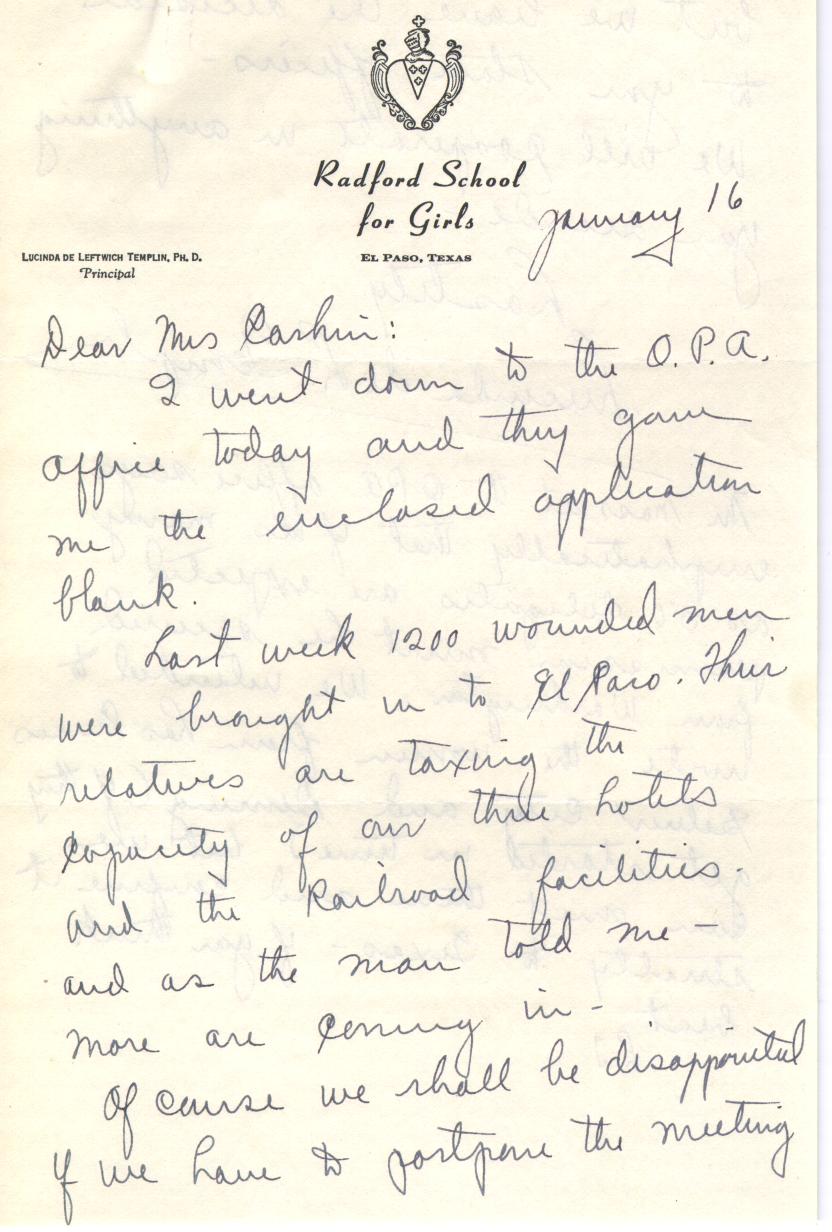 Radford School
for Girls
January 16
LUCINDA DE LEFTWICH TEMPLIN, PH. D.
Principal
EL PASO, TEXAS
Dear Mrs Cashin:
I went down to the O.P.A.
office today and they gave
me the enclosed application
blank.
Last week 1200 wounded men
were brought in to El Paso. Their
relatives are taxing the
capacity of our three hotels
and the Railroad facilities.
and as the man told me -
more are coming in -
Of course we shall be disappointed
if we have to postpone the meeting